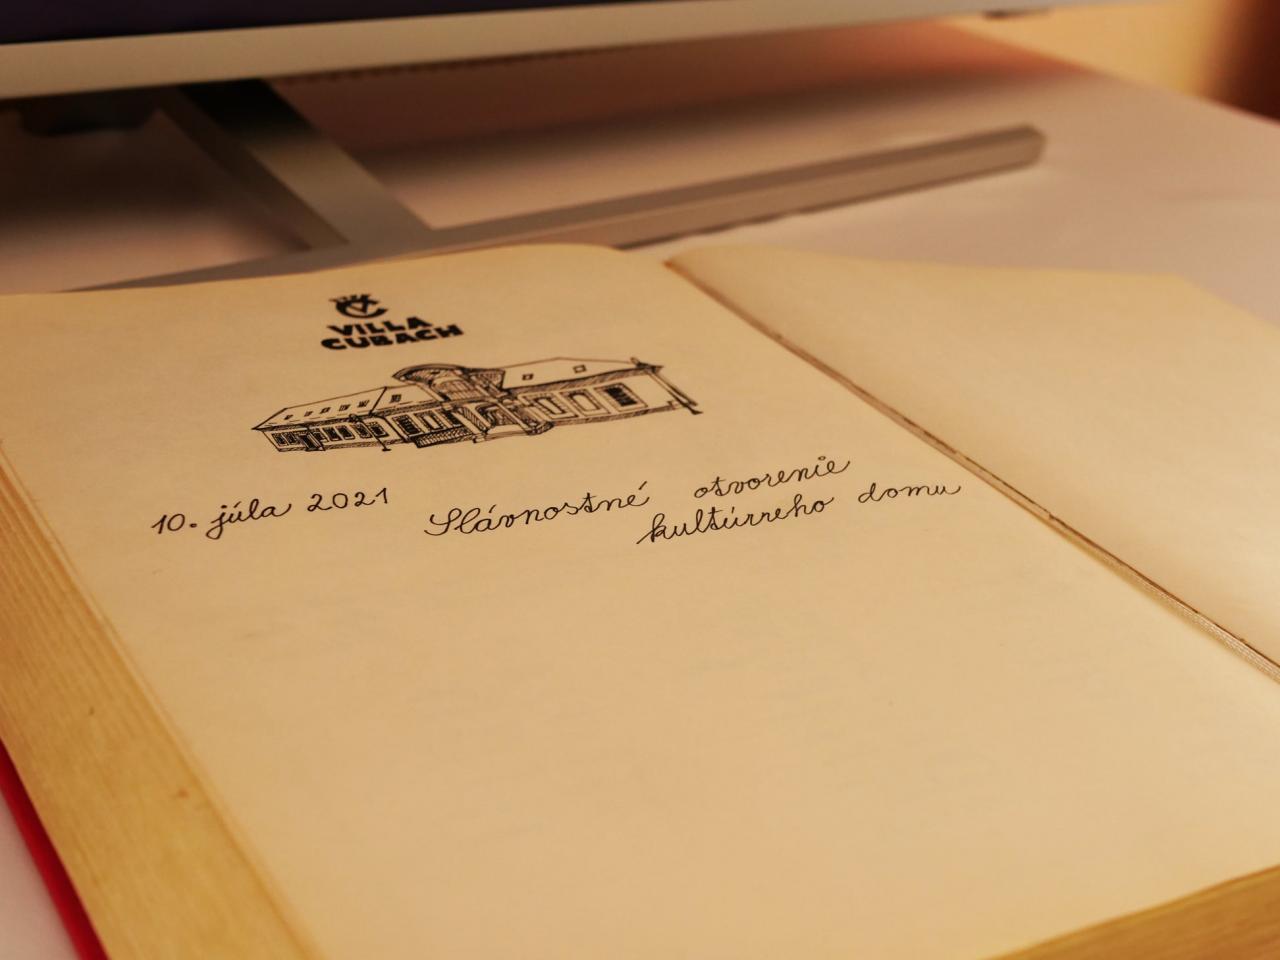 VILLA
CUBACH
10. júla 2021 Slávnostné otvorenie
kultúrneho domu